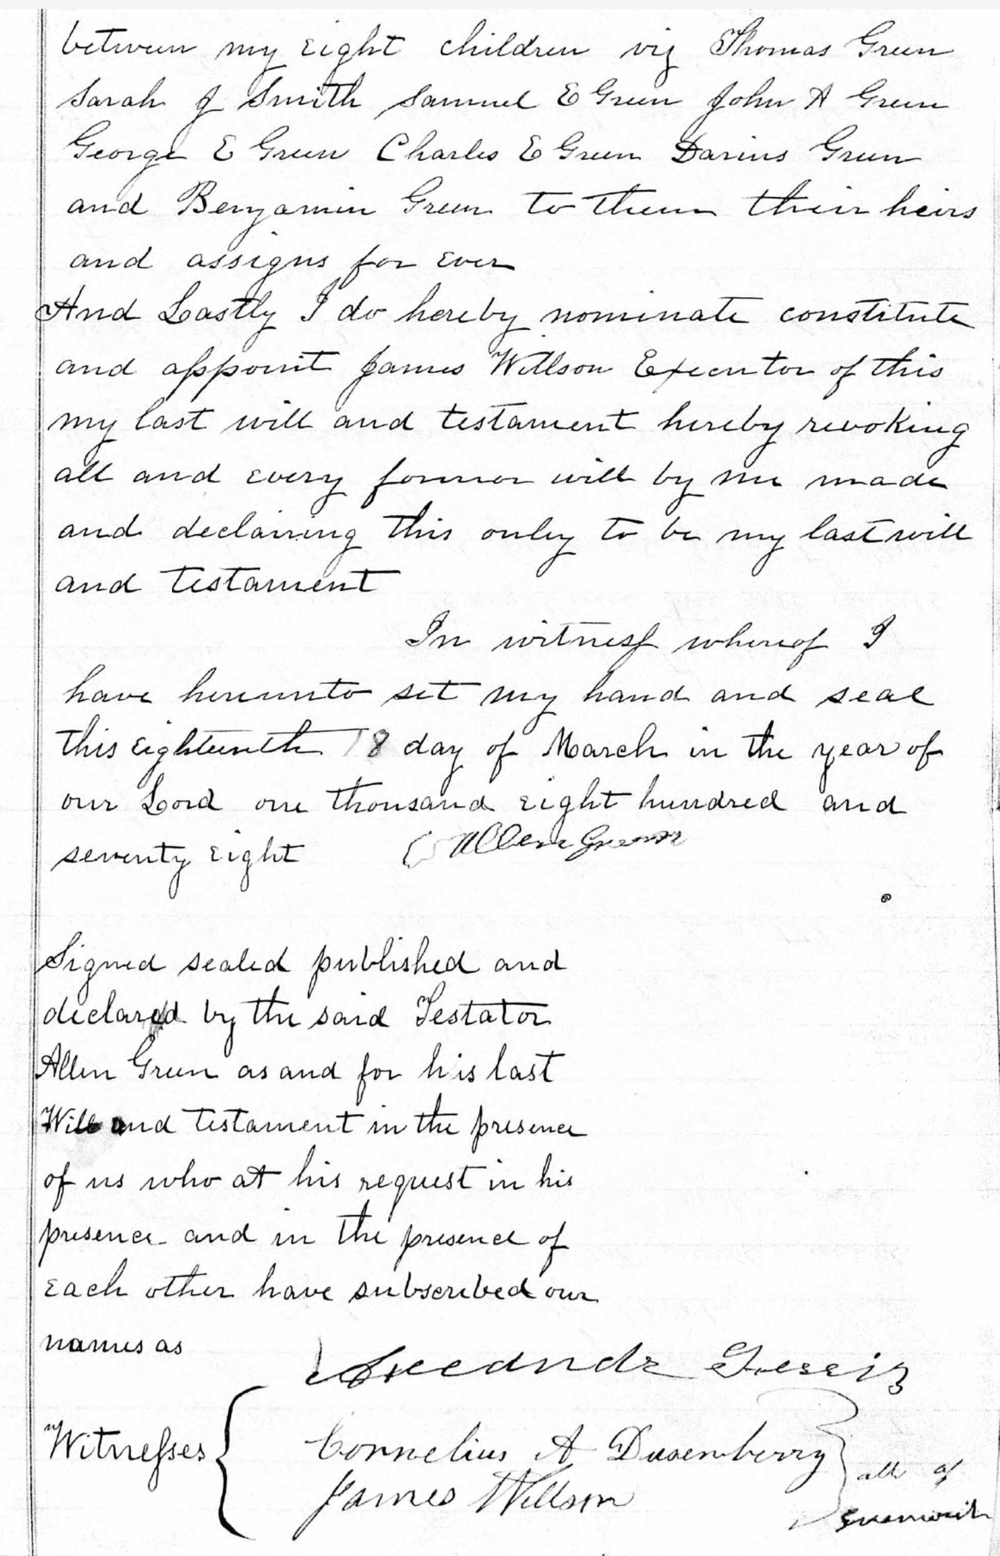 between my eight children viz Thomas Green
Sarah J Smith Samuel E Green John A Green
George E Green Charles E Green Darius Green
and Benjamin Green to them their heirs
and assigns for ever
And Lastly I do hereby nominate constitute
and appoint James Willson Executor of this
my last will and testament hereby revoking
all and every former will by me made
and declairing this only to be my last will
and testament
In witness whereof I
have hereunto set my hand and seal
this Eighteenth 18 day of March in the year of
our Lord one thousand eight hundred and
seventy eight Allen Green
Signed sealed published and
declared by the said Testator
Allen Green as and for his last
Will and testament in the presence
of us who at his request in his
presence and in the presence of
each other have subscribed our
names as
Witnesses Cornelius A Dusenberry all of
James Willson Greenwich